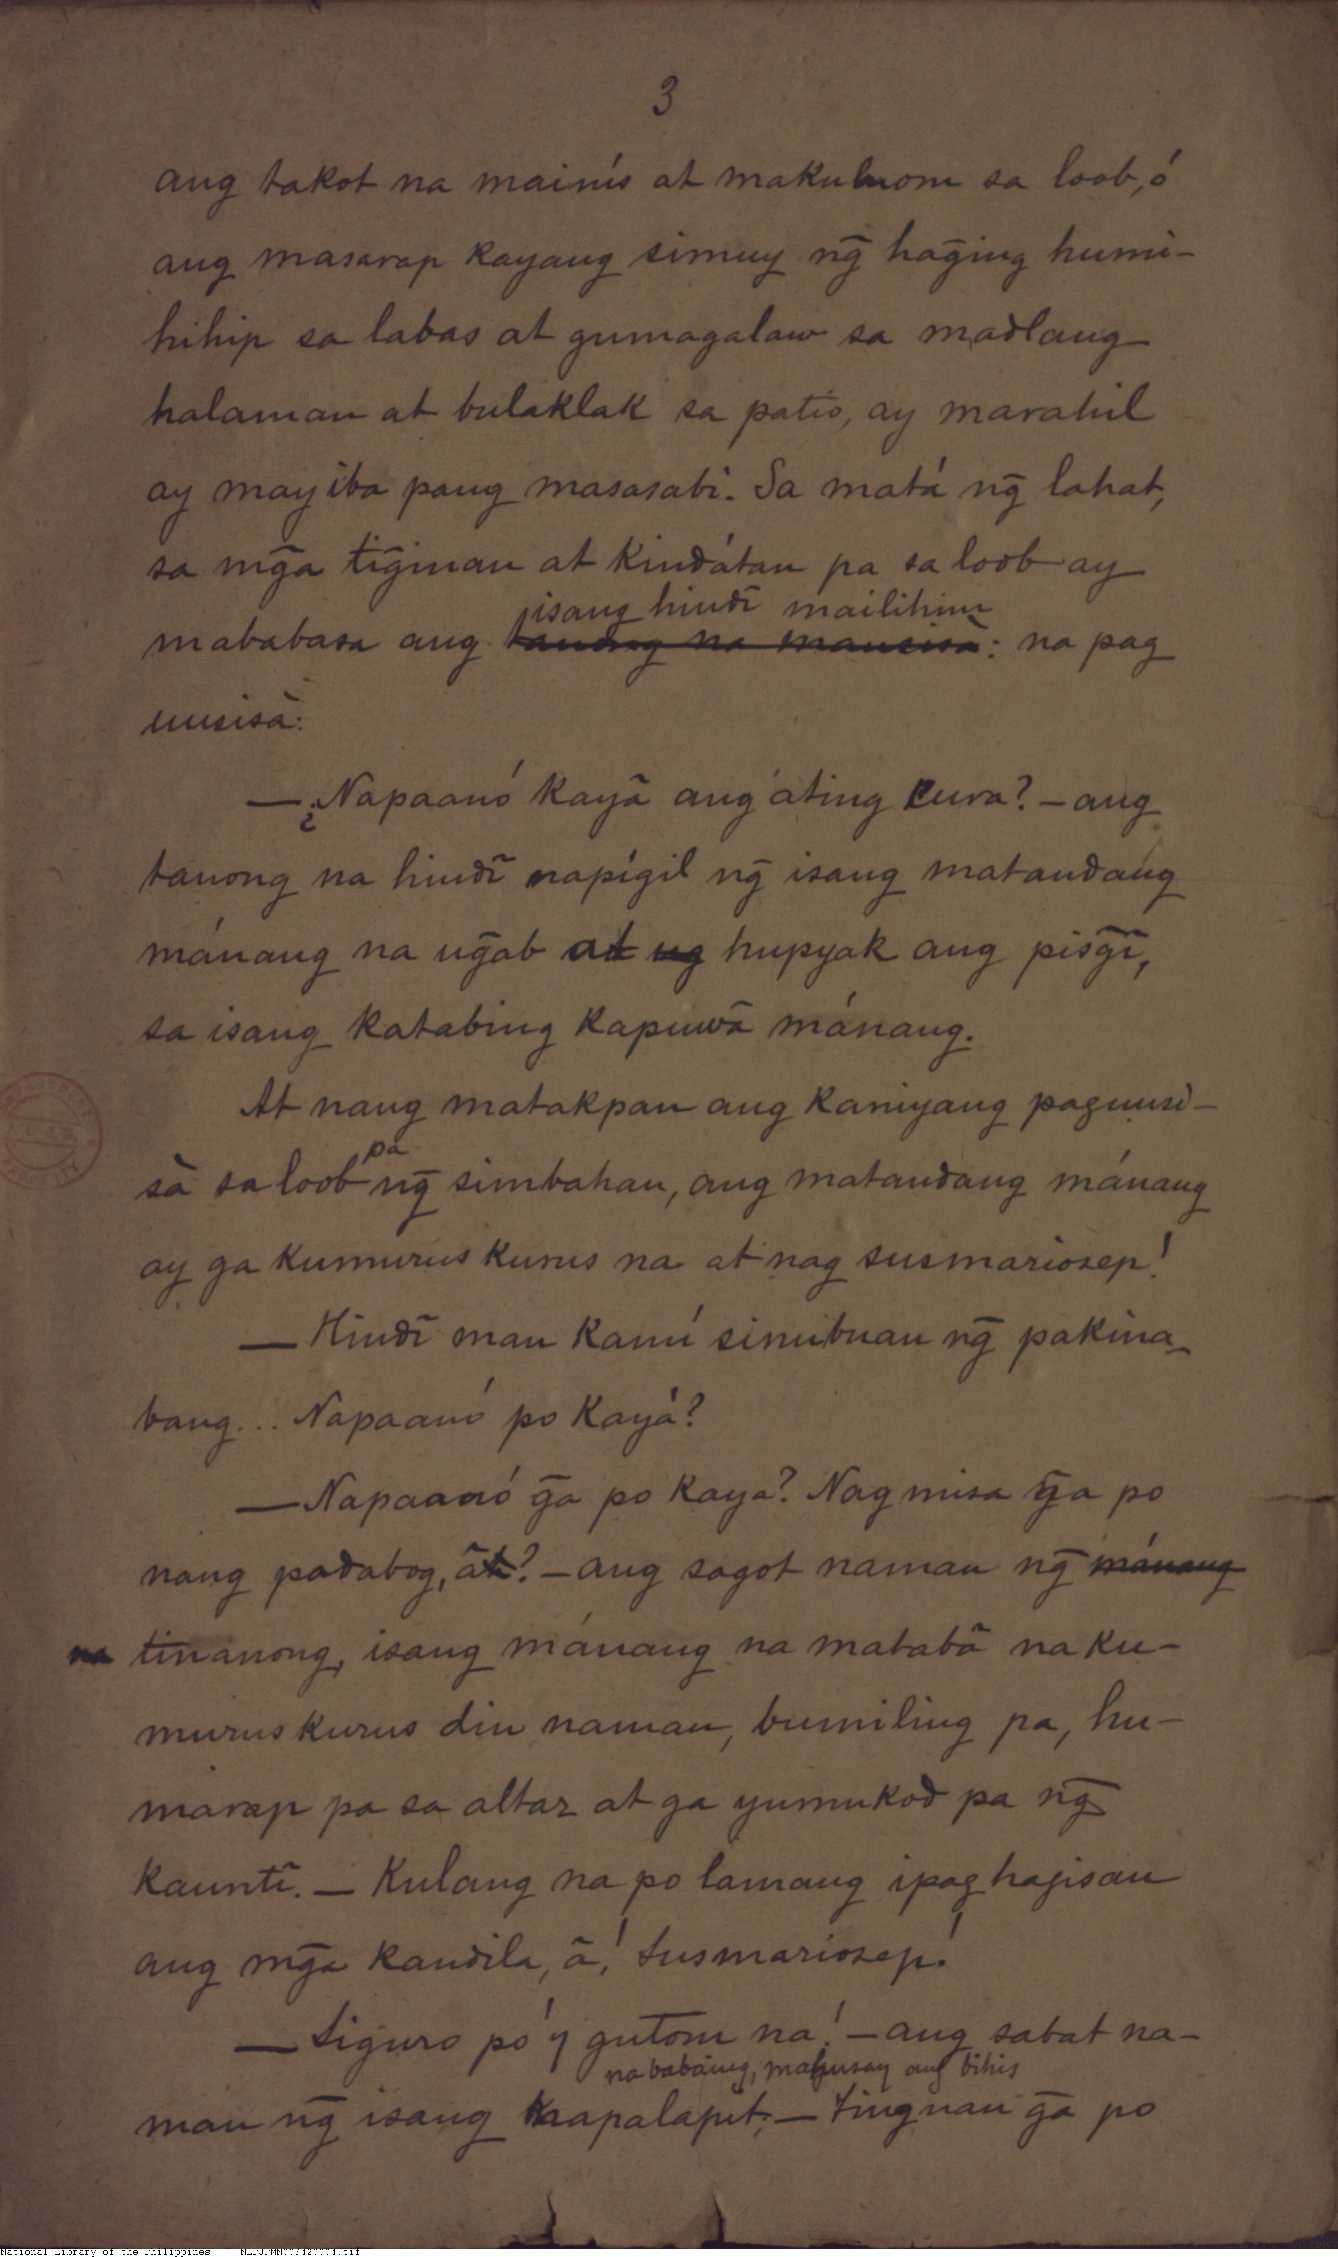 3
ang takot na mainís at makulom sa loob, ó
ang masarap kayang simuy ng̃ hag̃ing humi-
hihip sa labas at gumagalaw sa madlang
halaman at bulaklak sa patio, ay marahil
ay may iba pang masasabi. Sa matá ng̃ lahat,
sa mg̃a tig̃inan at kindátan pa sa loob ay
isang hindî mailihim
mababasa ang tandang na mausisà: na pag
uusisà:
— ¿Napaanó kayâ ang ating Cura? — ang
tanong na hindî napígil ng̃ isang matandang
mánang na ug̃ab at ug hupyak ang pisg̃î,
sa isang katabing kapuwâ mánang.
At nang matakpan ang kaniyang paguusi-
pa
sà sa loob ng̃ simbahan, ang matandang mánang
ay ga kumurus kurus na at nag susmariosep!
— Hindî man kamí sinubuan ng̃ pakina-
bang... Napaanó po kayá?
— Napaanó g̃a po kaya? Nag misa g̃a po
nang padabog, ât? — ang sagot naman ng̃ mánang
na tinanong, isang mánang na matabâ na ku-
murus kurus din naman, bumiling pa, hu-
marap pa sa altar at ga yumukod pa ng̃
kauntî. — Kulang na po lamang ipag hagisan
ang mg̃a kandila, â,! Susmariosep!
— Siguro po'y gutom na! — ang sabat na-
na babáing, mahusay ang bihis
man ng̃ isang mapalapit; — Tingnan g̃a po
National Library of the Philippines